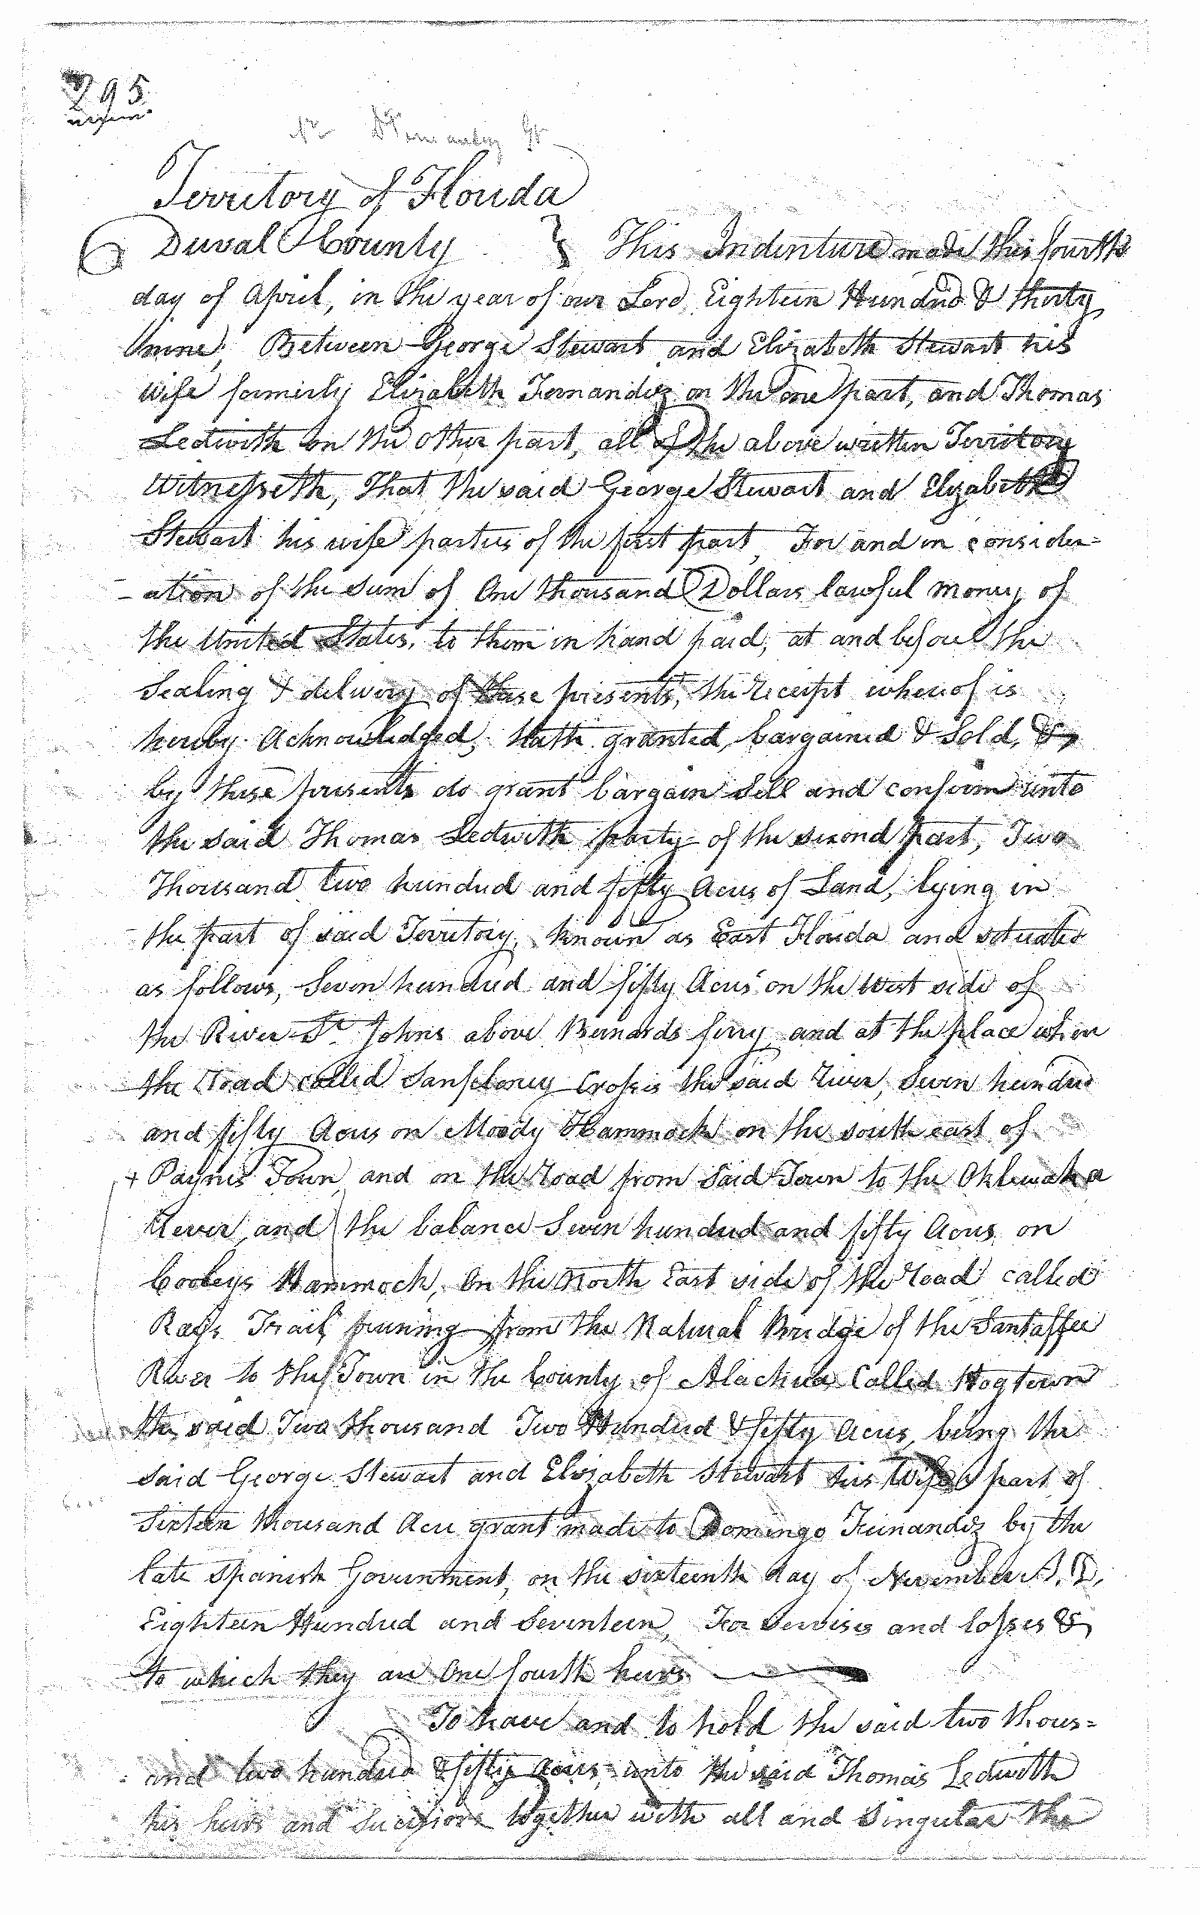 295
Territory of Florida
Duval County } This Indenture made this fourth
day of April, in the year of our Lord Eighteen Hundred & thirty
nine, Between George Stewart and Elizabeth Stewart his
wife formerly Elizabeth Fernandez on the one part, and Thomas
Ledwith on the other part, all of the above written Territory
Witnesseth, That the said George Stewart and Elizabeth
Stewart his wife parties of the first part, For and in consider=
-ation of the sum of One thousand Dollars lawful money of
the United States, to them in hand paid, at and before the
Sealing & delivery of these presents, the receipt whereof is
hereby Acknowledged, Hath granted, bargained & Sold, &
by these presents do grant bargain Sell and confirm unto
the said Thomas Ledwith party of the second part, Two
Thousand two hundred and fifty Acres of Land, lying in
the part of said Territory, known as East Florida and situated
as follows, Seven hundred and fifty Acres on the West side of
the River St. Johns above Bernards ferry and at the place where
the road called Sanfeloney Crosses the said river, Seven hundred
and fifty Acres on Moody Hammock on the south east of
+ Paynes Town, and on the road from Said Town to the Oklewaha
River, and the balance Seven hundred and fifty Acres on
Cooleys Hammock, On the North East side of the road called
Rays Trail, runing from the Natural Bridge of the Santaffee
River to the Town in the County of Alachua Called Hogtown
the said Two thousand Two Hundred & fifty Acres, being the
said George Stewart and Elizabeth Stewart his Wifes part of
Sixteen thousand Acre grant made to Domingo Fernandez by the
late Spanish Government, on the sixteenth day of November A.D.
Eighteen Hundred and Seventeen, For servises and losses &
to which they are One fourth heirs
To have and to hold the said two thous=
and two hundred & fifty Acres, unto the said Thomas Ledwith
his heirs and Sucessors together with all and Singular the